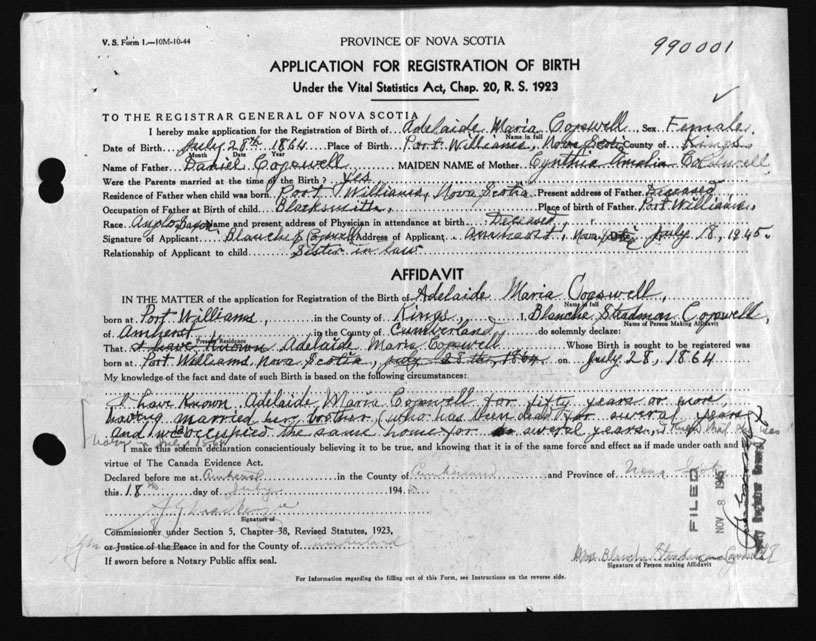 V. S. Form 1.—10M-10-44
PROVINCE OF NOVA SCOTIA
990001
APPLICATION FOR REGISTRATION OF BIRTH
Under the Vital Statistics Act, Chap. 20, R. S. 1923
TO THE REGISTRAR GENERAL OF NOVA SCOTIA
I hereby make application for the Registration of Birth of Adelaide Maria Cogswell Sex Female
Name in full
Date of Birth July 28th 1864 Place of Birth Port Williams, Nova Scotia County of Kings
Month Date Year
Name of Father Daniel Cogswell MAIDEN NAME of Mother Cynthia Amelia Caldwell
Were the Parents married at the time of the Birth? Yes
Residence of Father when child was born Port Williams, Nova Scotia Present address of Father Deceased
Occupation of Father at Birth of child Blacksmith, Place of birth of Father Port Williams,
Race Anglo Saxon Name and present address of Physician in attendance at birth Deceased,
Signature of Applicant Blanche S Cogswell Address of Applicant Amherst, Nova Scotia July 18, 1945.
Relationship of Applicant to child Sister in law.
AFFIDAVIT
IN THE MATTER of the application for Registration of the Birth of Adelaide Maria Cogswell,
Name in full
born at Port Williams, in the County of Kings, I, Blanche Steadman Cogswell,
Name of Person Making Affidavit
of Amherst in the County of Cumberland do solemnly declare:
Present Residence
That I have Known Adelaide Maria Cogswell Whose Birth is sought to be registered was
born at Port Williams Nova Scotia, July 28th, 1864 on July 28, 1864
My knowledge of the fact and date of such Birth is based on the following circumstances:
I have Known Adelaide Maria Cogswell for fifty years or more,
having married her brother, (who has been dead) for several years
and we occupied the same home for several years,
I make this solemn declaration conscientiously believing it to be true, and knowing that it is of the same force and effect as if made under oath and by
virtue of The Canada Evidence Act.
Declared before me at Amherst in the County of Cumberland and Province of Nova Scotia
this 18th day of July 1945
Signature of
Commissioner under Section 5, Chapter 38, Revised Statutes, 1923,
or Justice of the Peace in and for the County of Cumberland
If sworn before a Notary Public affix seal.
FILED
NOV 8 1945
Deputy Registrar General
Mrs Blanche Steadman Cogswell
Signature of Person making Affidavit
For Information regarding the filling out of this Form, see Instructions on the reverse side.